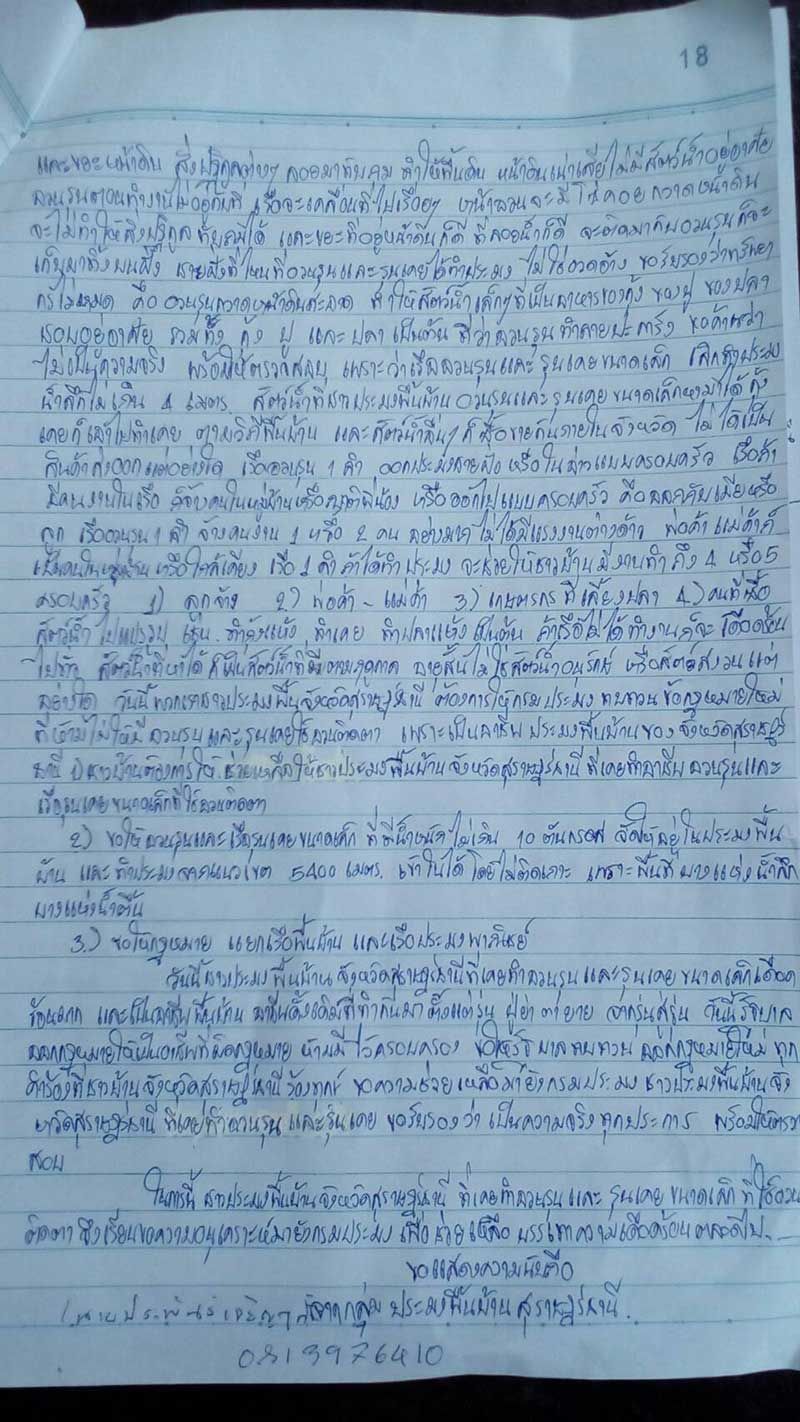 18
และขยะหน้าดิน สิ่งปฏิกูลต่างๆ ลอยมาทับถม ทำให้พื้นดิน หน้าดินเน่าเสีย ไม่มีสัตว์น้ำอยู่อาศัย
อวนรุนตอนทำงานไม่อยู่กับที่ เรือจะเคลื่อนที่ไปเรื่อยๆ หน้าอวนจะมีโซ่คอยกวาดหน้าดิน
จะไม่ทำให้สิ่งปฏิกูลทับถมได้ และขยะที่อยู่หน้าดินก็ดี ที่ลอยน้ำก็ดี จะติดมากับอวนรุนก็จะ
เก็บมาทิ้งบนฝั่ง ชายฝั่งที่ไหนที่อวนรุนและรุนเคยได้ทำประมง ไม่ใช่อวดอ้าง ขอรับรองว่าทรัพยา
กรไม่หมด คือ อวนรุนกวาดหน้าดินสะอาด ทำให้สัตว์น้ำเล็กๆ ที่เป็นอาหารของกุ้ง ของปู ของปลา
ชอบอยู่อาศัย รวมทั้ง กุ้ง ปู และ ปลา เป็นต้น ที่ว่าอวนรุน ทำลายปะการัง ขอค้านว่า
ไม่เป็นความจริง พร้อมให้ตรวจสอบ เพราะว่าเรืออวนรุนและรุนเคยขนาดเล็ก ประมง
น้ำลึกไม่เกิน 4 เมตร. สัตว์น้ำที่ชาวประมงพื้นบ้าน อวนรุนและรุนเคยขนาดเล็กหามาได้ กุ้ง
เคยก็เอาไปทำเคย ตามวิถีพื้นบ้าน และสัตว์น้ำอื่นๆ ก็ซื้อขายกันภายในจังหวัด ไม่ได้เป็น
สินค้าส่งออกแต่อย่างใด เรืออวนรุน 1 ลำ ออกประมงชายฝั่ง หรือในอ่าวแบบครอบครัว
มีคนงานในเรือ ก็จ้างคนในหมู่บ้านหรือญาติพี่น้อง หรือออกไปแบบครอบครัว คือออกกับเมียหรือ
ลูก เรืออวนรุน 1 ลำ จ้างคนงาน 1 หรือ 2 คน อย่างมาก ไม่ได้มีแรงงานต่างด้าว พ่อค้า แม่ค้าก็
เป็นคนในหมู่บ้าน หรือใกล้เคียง เรือ 1 ลำ ถ้าได้ทำประมง จะช่วยให้ชาวบ้าน มีงานทำ ถึง 4 หรือ 5
ครอบครัว 1) ลูกจ้าง 2) พ่อค้า - แม่ค้า 3) เกษตรกร ที่เลี้ยงปลา 4) คนที่ซื้อ
สัตว์น้ำ ไปแปรรูป เช่น. ทำกุ้งแห้ง ทำเคย ทำปลาแห้ง เป็นต้น ถ้าเรือไม่ได้ทำงาน ก็จะเดือดร้อน
ไปทั่ว สัตว์น้ำที่หาได้ ก็เป็นสัตว์น้ำที่มีตามฤดูกาล อายุสั้น ไม่ใช่สัตว์น้ำอนุรักษ์ หรือสัตว์สงวนแต่
อย่างใด วันนี้พวกเราชาวประมงพื้นจังหวัดสุราษฎร์ธานี ต้องการให้กรมประมง ทบทวน ข้อกฎหมายใหม่
ที่ห้ามไม่ให้มีอวนรุนและรุนเคยใช้อวนติดตา เพราะเป็นอาชีพ ประมงพื้นบ้านของจังหวัดสุราษฎร์
ธานี 1) ชาวบ้านต้องการให้ ช่วยเหลือให้ชาวประมงพื้นบ้านจังหวัดสุราษฎร์ธานี ที่เคยทำอาชีพ อวนรุนและ
เรือรุนเคยขนาดเล็กที่ใช้อวนติดตา
2) ขอให้อวนรุนและเรือรุนเคยขนาดเล็ก ที่มีน้ำหนักไม่เกิน 10 ตันกรอส จัดให้อยู่ในประมงพื้น
บ้าน และทำประมงจากแนวเขต 5400 เมตร. เข้าในได้ โดยไม่ติดเกาะ เพราะพื้นที่บางแห่งน้ำลึก
บางแห่งน้ำตื้น
3.) ขอให้กฎหมาย แยกเรือพื้นบ้าน และเรือประมงพาณิชย์
วันนี้ชาวประมงพื้นบ้าน จังหวัดสุราษฎร์ธานีที่เคยทำอวนรุน และรุนเคยขนาดเล็กเดือด
ร้อนมาก และเป็นอาชีพพื้นบ้าน อาชีพดั้งเดิมที่ทำกินมา ตั้งแต่รุ่น ปู่ย่าตายาย จากรุ่นสู่รุ่น วันนี้รัฐบาล
ออกกฎหมายให้เป็นอาชีพที่ผิดกฎหมาย ห้ามมีไว้ครอบครอง ขอให้รัฐบาลทบทวน ออกกฎหมายใหม่ ทุก
คำร้องที่ชาวบ้านจังหวัดสุราษฎร์ธานี ร้องทุกข์ ขอความช่วยเหลือมายังกรมประมง ชาวประมงพื้นบ้านจัง
หวัดสุราษฎร์ธานี ที่เคยทำอวนรุน และรุนเคย ขอรับรองว่า เป็นความจริงทุกประการ พร้อมให้ตรวจ
สอบ
ในการนี้ ชาวประมงพื้นบ้านจังหวัดสุราษฎร์ธานี ที่เคยทำอวนรุนและรุนเคย ขนาดเล็กที่ใช้อวน
ติดตา จึงเรียนขอความอนุเคราะห์มายังกรมประมง เพื่อช่วยเหลือ บรรเทาความเดือดร้อน ตลอดไป.
ขอแสดงความนับถือ
จากกลุ่ม ประมงพื้นบ้าน สุราษฎร์ธานี.
0813976410